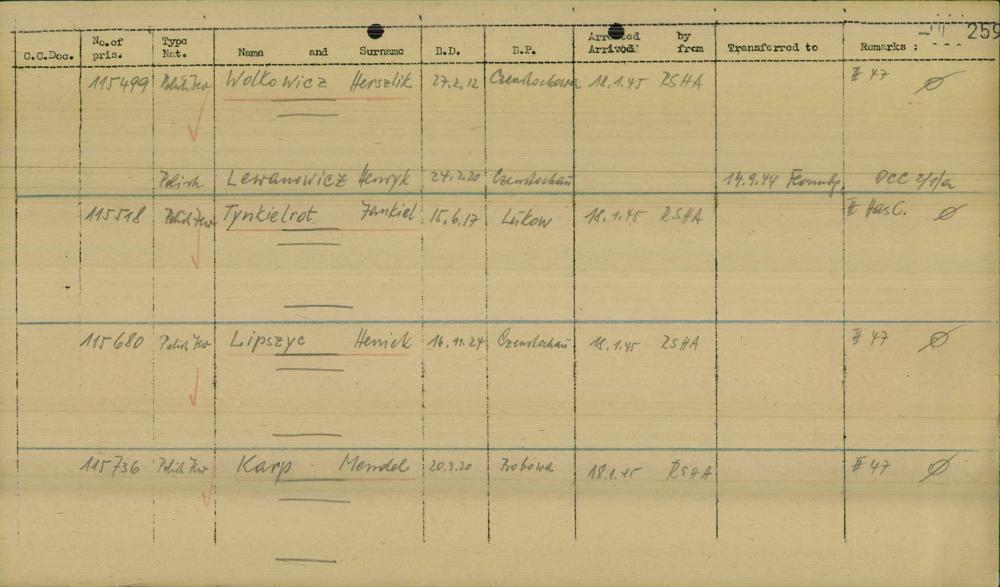 259
C.C.Doc. No.of pris. Type Nat. Name and Surname B.D. B.P. Arrested Arrived by from Transferred to Remarks :
115499 Polish Jew Wolkowicz Herszlik 27.2.12 Czenstochowa 18.1.45 RSHA II 47 Ø
Polish Lewanowicz Henryk 24.2.20 Czenstochau 14.9.44 OCC 2/1/a
115518 Polish Jew Tynkielrot Jankiel 15.6.17 Lukow 18.1.45 RSHA II HasG. Ø
115680 Polish Jew Lipszyc Heniek 16.11.24 Czenstochau 18.1.45 RSHA II 47 Ø
115736 Polish Jew Karp Mendel 20.3.20 Bobowa 18.1.45 RSHA II 47 Ø